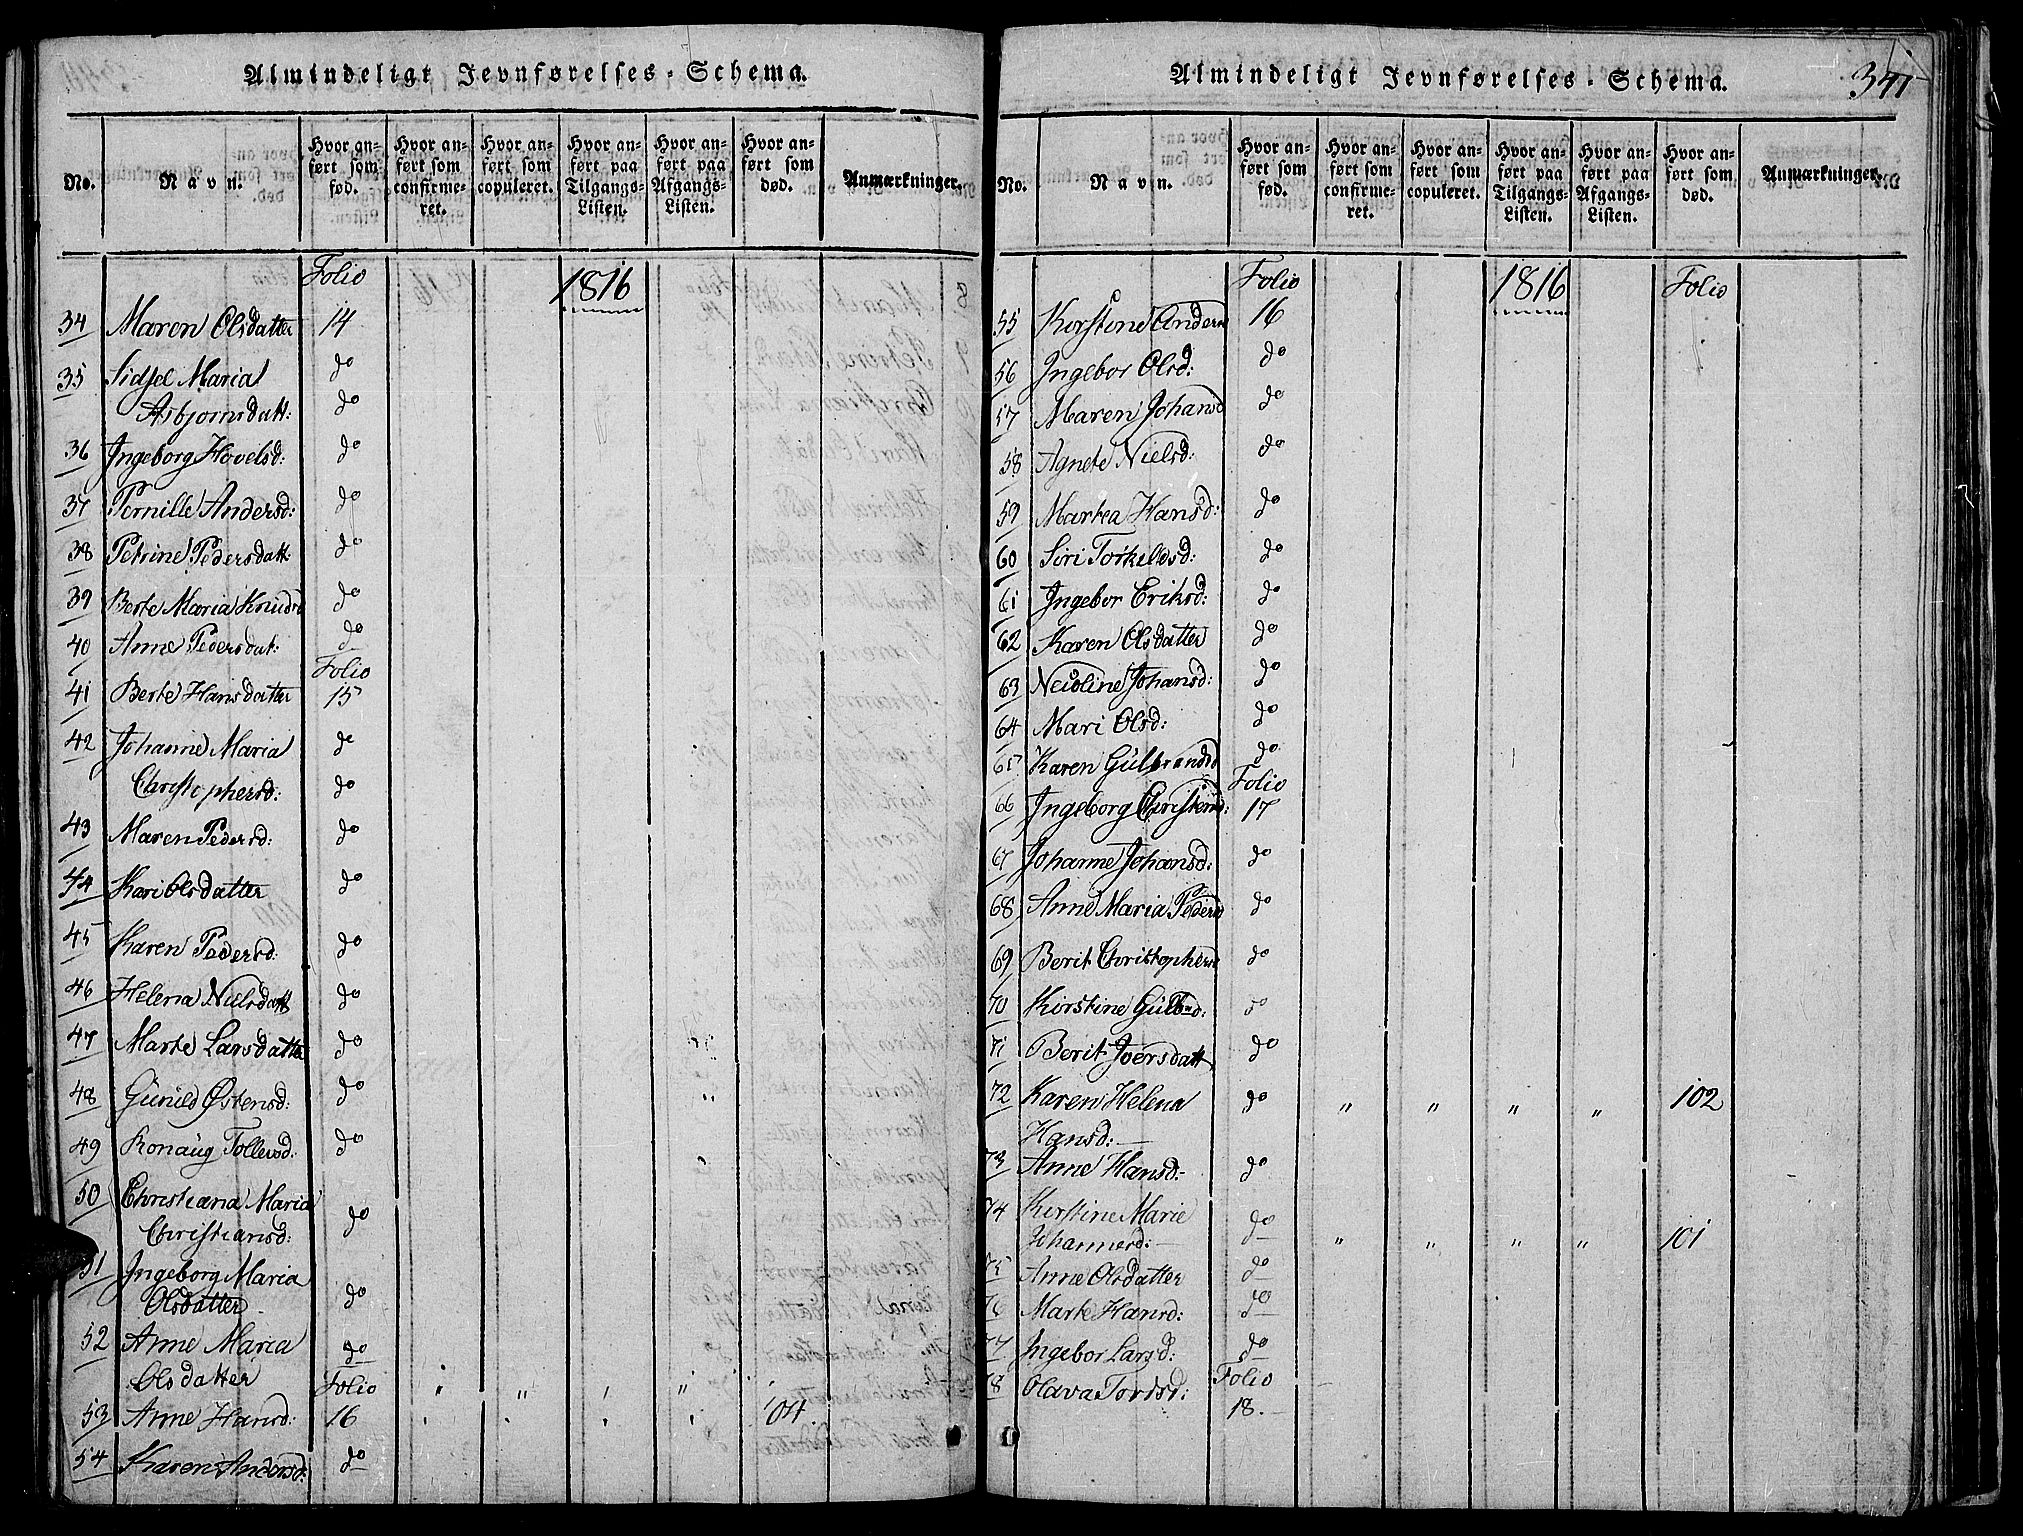 Almindeligt Jevnførelses-Schema.
No.
Navn.
Hvor anført som fød.
Hvor anført som confirmeret.
Hvor anført som copuleret.
Hvor anført paa Tilgangs-Listen.
Hvor anført paa Afgangs-Listen.
Hvor anført som død.
Anmærkninger.
Folio 1816
34 Maren Olsdatter 14
35 Sidsel Maria do
Asbjornsdatt: do
36 Ingeborg Hovelsd: do
37 Pernille Andersd: do
38 Petrine Pedersdatt do
39 Berte Maria Knudsd do
40 Anne Pedersdat: do
Folio
41 Berte Hansdatter 15
42 Johanne Maria do
Christophersd: do
43 Maren Pedersd: do
44 Kari Olsdatter do
45 Karen Pedersd: do
46 Helena Nielsdatt do
47 Marte Larsdatter do
48 Gunild Østensd: do "
49 Ronaug Tollevsd: do
50 Christiana Maria
Christiansd: do
51 Ingeborg Maria
Olsdatter do
52 Anne Maria do
Olsdatter Folio
53 Anne Hansd: 16 104
54 Karen Andersd: do
Almindeligt Jevnførelses-Schema. 341
No.
Navn.
Hvor anført som fød.
Hvor anført som confirmeret.
Hvor anført som copuleret.
Hvor anført paa Tilgangs-Listen.
Hvor anført paa Afgangs-Listen.
Hvor anført som død.
Anmærkninger.
Folio 1816 Folio
55 Kirstine Andersd 16
56 Ingebor Olsd: do
57 Maren Johansd do
58 Agnete Nielsd: do
59 Martea Hansd: do
60 Siri Torkeldsd: do
61 Ingebor Eriksd: do
62 Karen Olsdatter do
63 Neioline Johansd: do
64 Mari Olsd: do
65 Karen Gulbrandsd do
Folio
66 Ingeborg Christensd: 17
67 Johanne Johansd: do
68 Anne Maria Pedersd do
69 Berit Christophersd do
70 Kirstine Gulbrd: do
71 Berit Joersdatt do
72 Karen Helena do " " " " 102
Hansd:
73 Anne Hansd: do
74 Kirstine Marie do
Johannesd: " " " " 101
75 Anne Olsdatter do
76 Marte Hansd: do
77 Ingebor Larsd: do
78 Olava Tordsd: Folio
18.